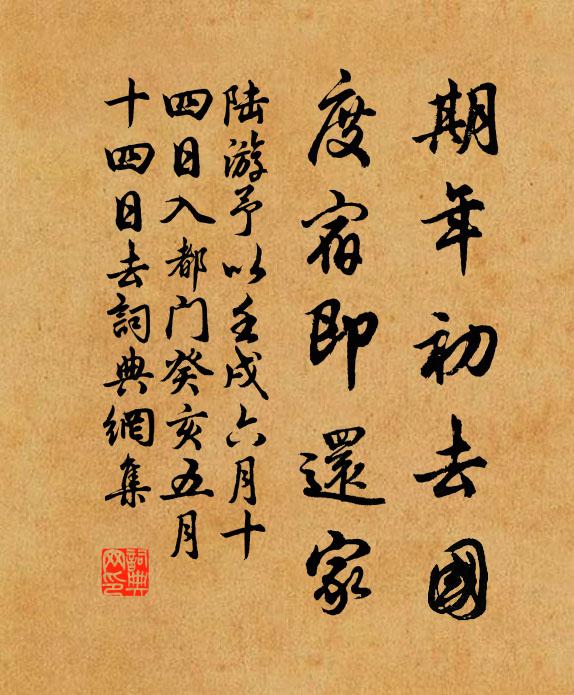 期年初去國
度宿即還家
陆游予以壬戌六月十
四日入都门癸亥五月
十四日去詞典網集
詞典网印